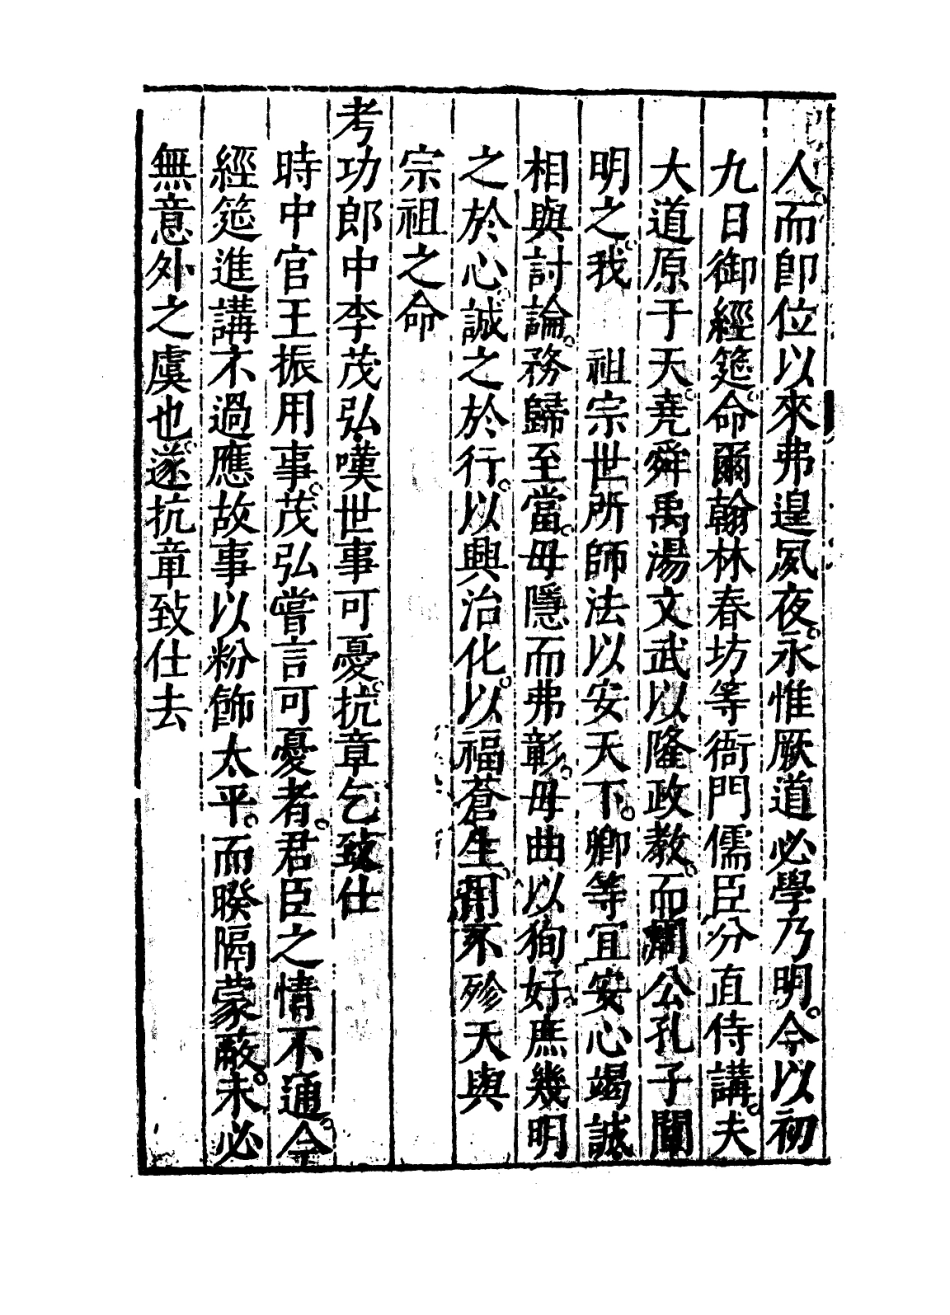 人。而卽位以來弗遑夙夜。永惟厥道必學乃明。今以初
九日御經筵。命爾翰林春坊等衙門儒臣分直侍講。夫
大道原于天。堯舜禹湯文武以隆政教。而周公孔子闡
明之。我　祖宗世所師法以安天下。卿等宜安心竭誠
相與討論。務歸至當。毋隱而弗彰。毋曲以狥好。庶幾明
之於心誠之於行。以興治化。以福蒼生。用不殄天與
宗祖之命
考功郎中李茂弘嘆世事可憂。抗章乞致仕
時中官王振用事。茂弘嘗言可憂者。君臣之情不通。今
經筵進講不過應故事以粉飾太平。而暌隔蒙蔽。未必
無意外之虞也。遂抗章致仕去